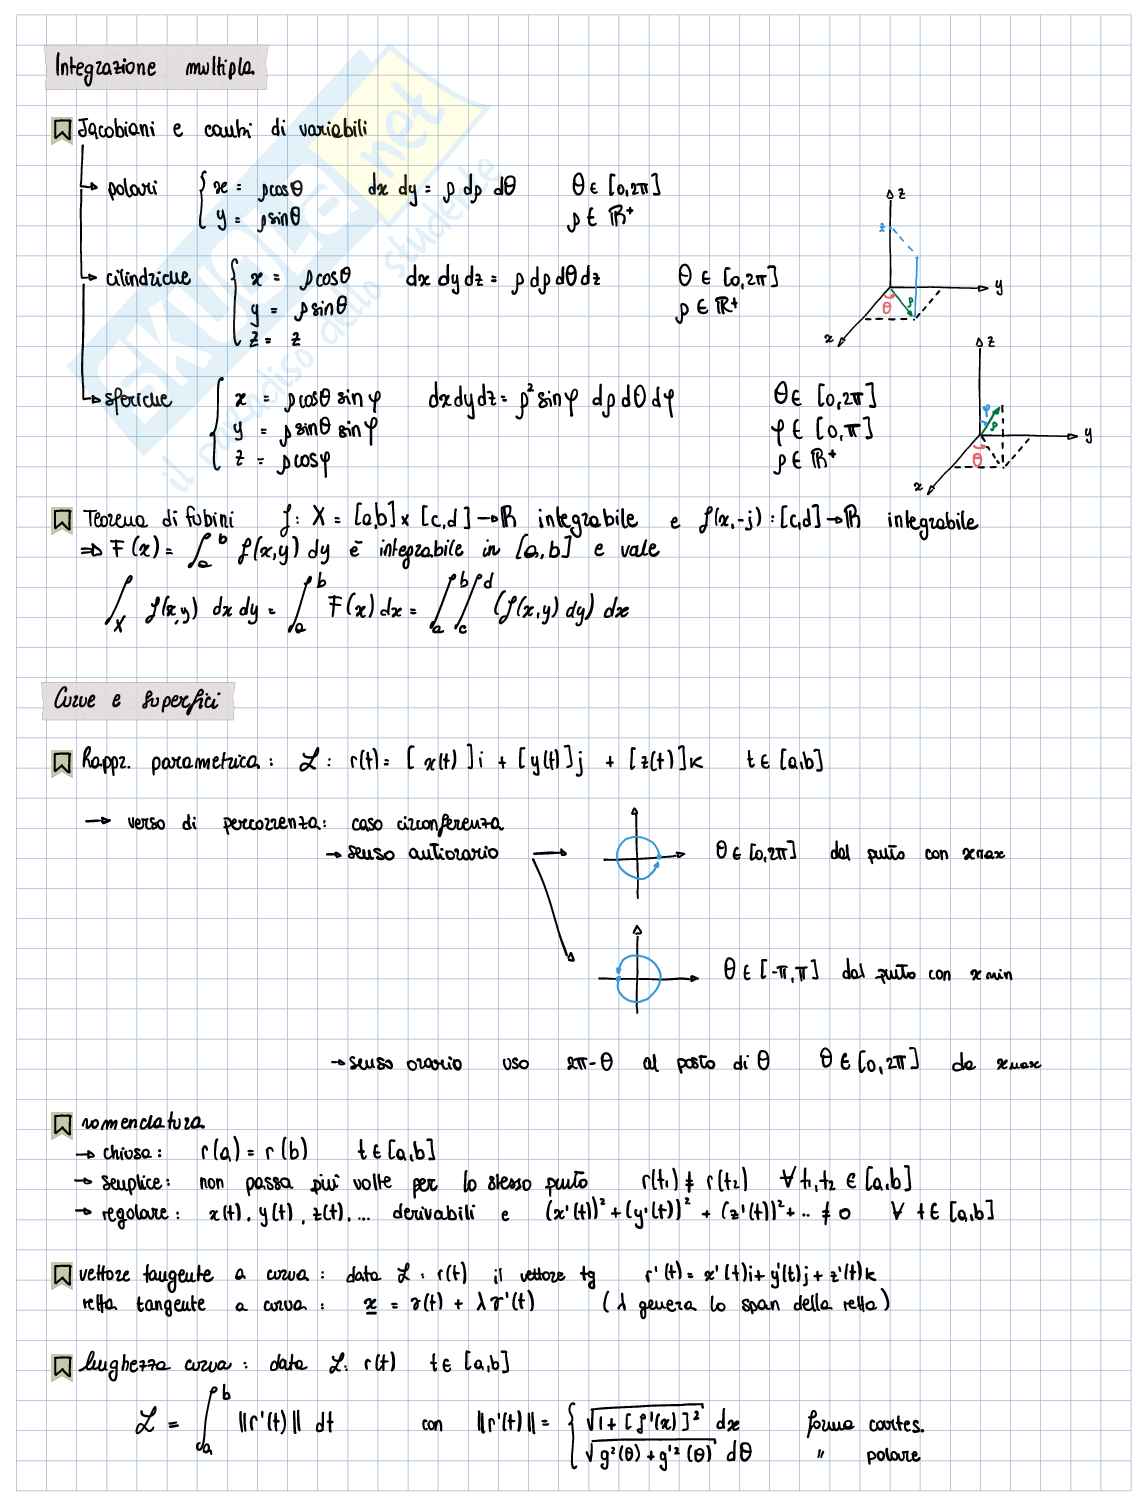 Integrazione multipla
Jacobiani e cambi di variabili
→ polari { x = ρcosθ dx dy = ρ dρ dθ θ ∈ [0,2π]
y = ρsinθ ρ ∈ ℝ⁺
→ cilindriche { x = ρcosθ dx dy dz = ρ dρ dθ dz θ ∈ [0,2π]
y = ρsinθ ρ ∈ ℝ⁺
z = z
z
z
y
θ
ρ
x
→ sferiche { x = ρcosθ sinφ dxdydz = ρ² sinφ dρ dθ dφ θ ∈ [0,2π]
y = ρsinθ sinφ φ ∈ [0,π]
z = ρcosφ ρ ∈ ℝ⁺
z
φ
ρ
y
θ
x
Teorema di fubini f: X = [a,b] x [c,d] → ℝ integrabile e f(x,-j) : [c,d] → ℝ integrabile
⇒ F(x) = ∫ₐᵇ f(x,y) dy è integrabile in [a,b] e vale
∫_X f(x,y) dx dy = ∫ₐᵇ F(x) dx = ∫ₐᵇ ∫_c^d (f(x,y) dy) dx
Curve e superfici
Rappr. parametrica : ℒ : r(t) = [ x(t) ]i + [y(t)]j + [z(t)]k t ∈ [a,b]
→ verso di percorrenza: caso circonferenza
→ senso antiorario → θ ∈ [0,2π] dal punto con xmax
θ ∈ [-π,π] dal punto con x min
→ senso orario uso 2π-θ al posto di θ θ ∈ [0,2π] da xmax
nomenclatura
→ chiusa : r(a) = r(b) t ∈ [a,b]
→ semplice : non passa più volte per lo stesso punto r(t₁) ≠ r(t₂) ∀ t₁,t₂ ∈ [a,b]
→ regolare : x(t), y(t), z(t), ... derivabili e (x'(t))² + (y'(t))² + (z'(t))² + .. ≠ 0 ∀ t ∈ [a,b]
vettore tangente a curva : data ℒ : r(t) il vettore tg r'(t) = x'(t)i + y'(t)j + z'(t)k
retta tangente a curva : x = r(t) + λr'(t) (λ genera lo span della retta)
lunghezza curva : data ℒ: r(t) t ∈ [a,b]
ℒ = ∫ₐᵇ ||r'(t)|| dt con ||r'(t)|| = { √(1 + [f'(x)]²) dx forma cartes.
√(g²(θ) + g'²(θ)) dθ " polare
SKUOLA.net
il paradiso dello studente